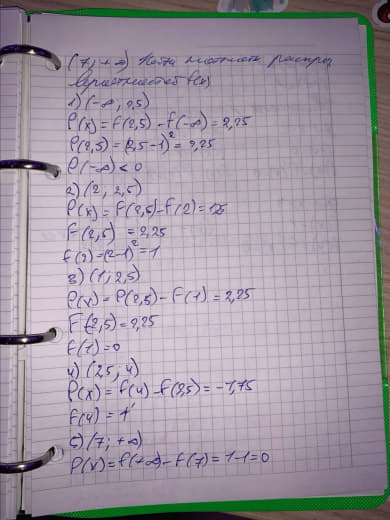 (7; +∞) Найти плотность распред
вероятностей f(x)
1) (-∞; 2,5)
P(x) = F(2,5) - F(-∞) = 2,25
P(2,5) = (2,5-1)² = 2,25
P(-∞) < 0
2) (2; 2,5)
P(x) = F(2,5) - F(2) = 1,25
F(2,5) = 2,25
F(2) = (2-1)² = 1
3) (1; 2,5)
P(x) = P(2,5) - F(1) = 2,25
F(2,5) = 2,25
F(1) = 0
4) (2,5; 4)
P(x) = F(4) - F(2,5) = -1,75
F(4) = 1
5) (7; +∞)
P(x) = F(+∞) - F(7) = 1-1=0